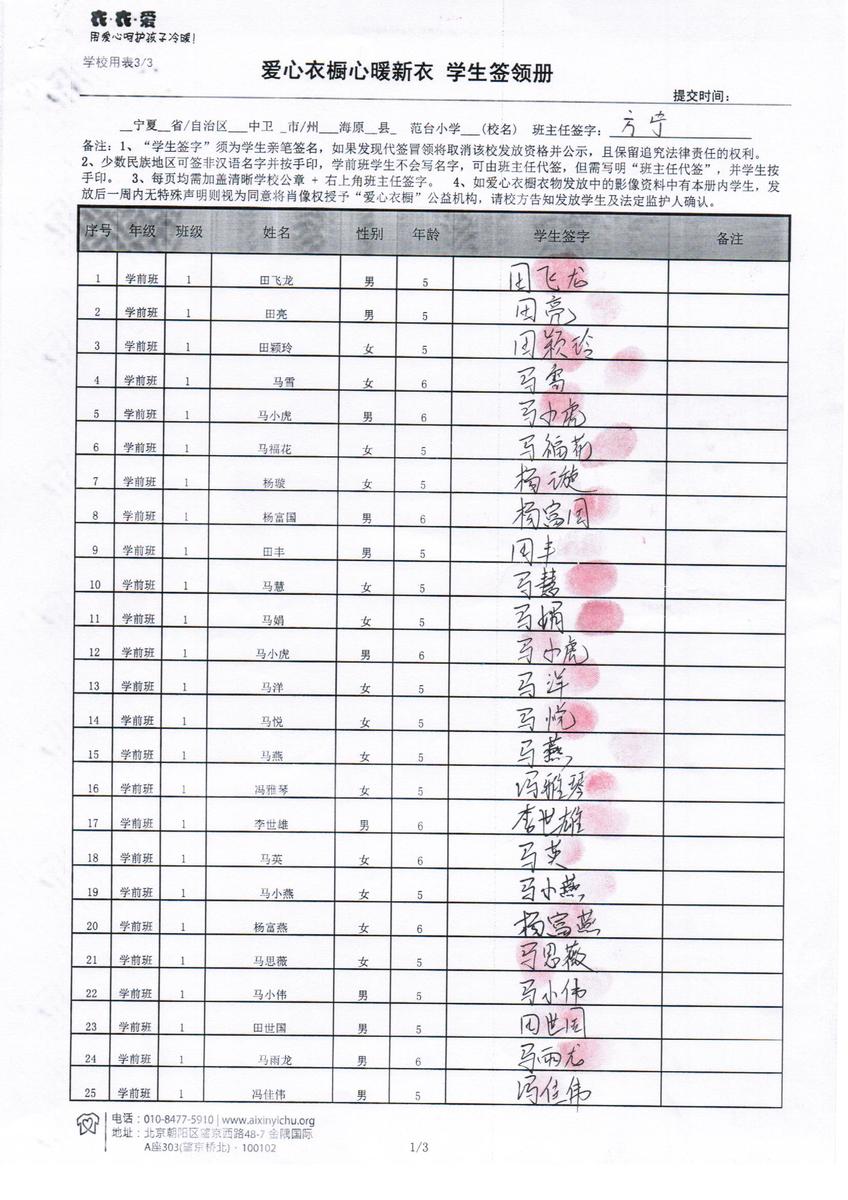 衣·衣·爱
用爱心呵护孩子冷暖！
学校用表3/3
爱心衣橱心暖新衣 学生签领册
提交时间：
__宁夏__省/自治区___中卫 _市/州___海原__县_ 范台小学___(校名) 班主任签字：方宁
备注：1、“学生签字”须为学生亲笔签名，如果发现代签冒领将取消该校发放资格并公示，且保留追究法律责任的权利。
2、少数民族地区可签非汉语名字并按手印，学前班学生不会写名字，可由班主任代签，但需写明“班主任代签”，并学生按
手印。 3、每页均需加盖清晰学校公章 + 右上角班主任签字。 4、如爱心衣橱衣物发放中的影像资料中有本册内学生，发
放后一周内无特殊声明则视为同意将肖像权授予“爱心衣橱”公益机构，请校方告知发放学生及法定监护人确认。
序号 年级 班级 姓名 性别 年龄 学生签字 备注
1 学前班 1 田飞龙 男 5 田飞龙
2 学前班 1 田亮 男 5 田亮
3 学前班 1 田颖玲 女 5 田颖玲
4 学前班 1 马雪 女 6 马雪
5 学前班 1 马小虎 男 6 马小虎
6 学前班 1 马福花 女 5 马福花
7 学前班 1 杨璇 女 5 杨璇
8 学前班 1 杨富国 男 6 杨富国
9 学前班 1 田丰 男 5 田丰
10 学前班 1 马慧 女 5 马慧
11 学前班 1 马娟 女 5 马娟
12 学前班 1 马小虎 男 6 马小虎
13 学前班 1 马洋 女 5 马洋
14 学前班 1 马悦 女 5 马悦
15 学前班 1 马燕 女 5 马燕
16 学前班 1 冯雅琴 女 5 冯雅琴
17 学前班 1 李世雄 男 6 李世雄
18 学前班 1 马英 女 6 马英
19 学前班 1 马小燕 女 5 马小燕
20 学前班 1 杨富燕 女 6 杨富燕
21 学前班 1 马思薇 女 5 马思薇
22 学前班 1 马小伟 男 5 马小伟
23 学前班 1 田世国 男 5 田世国
24 学前班 1 马雨龙 男 6 马雨龙
25 学前班 1 冯佳伟 男 5 冯佳伟
电话：010-8477-5910 | www.aixinyichu.org
地址：北京朝阳区望京西路48-7 金隅国际
A座303(望京桥北)·100102
1/3